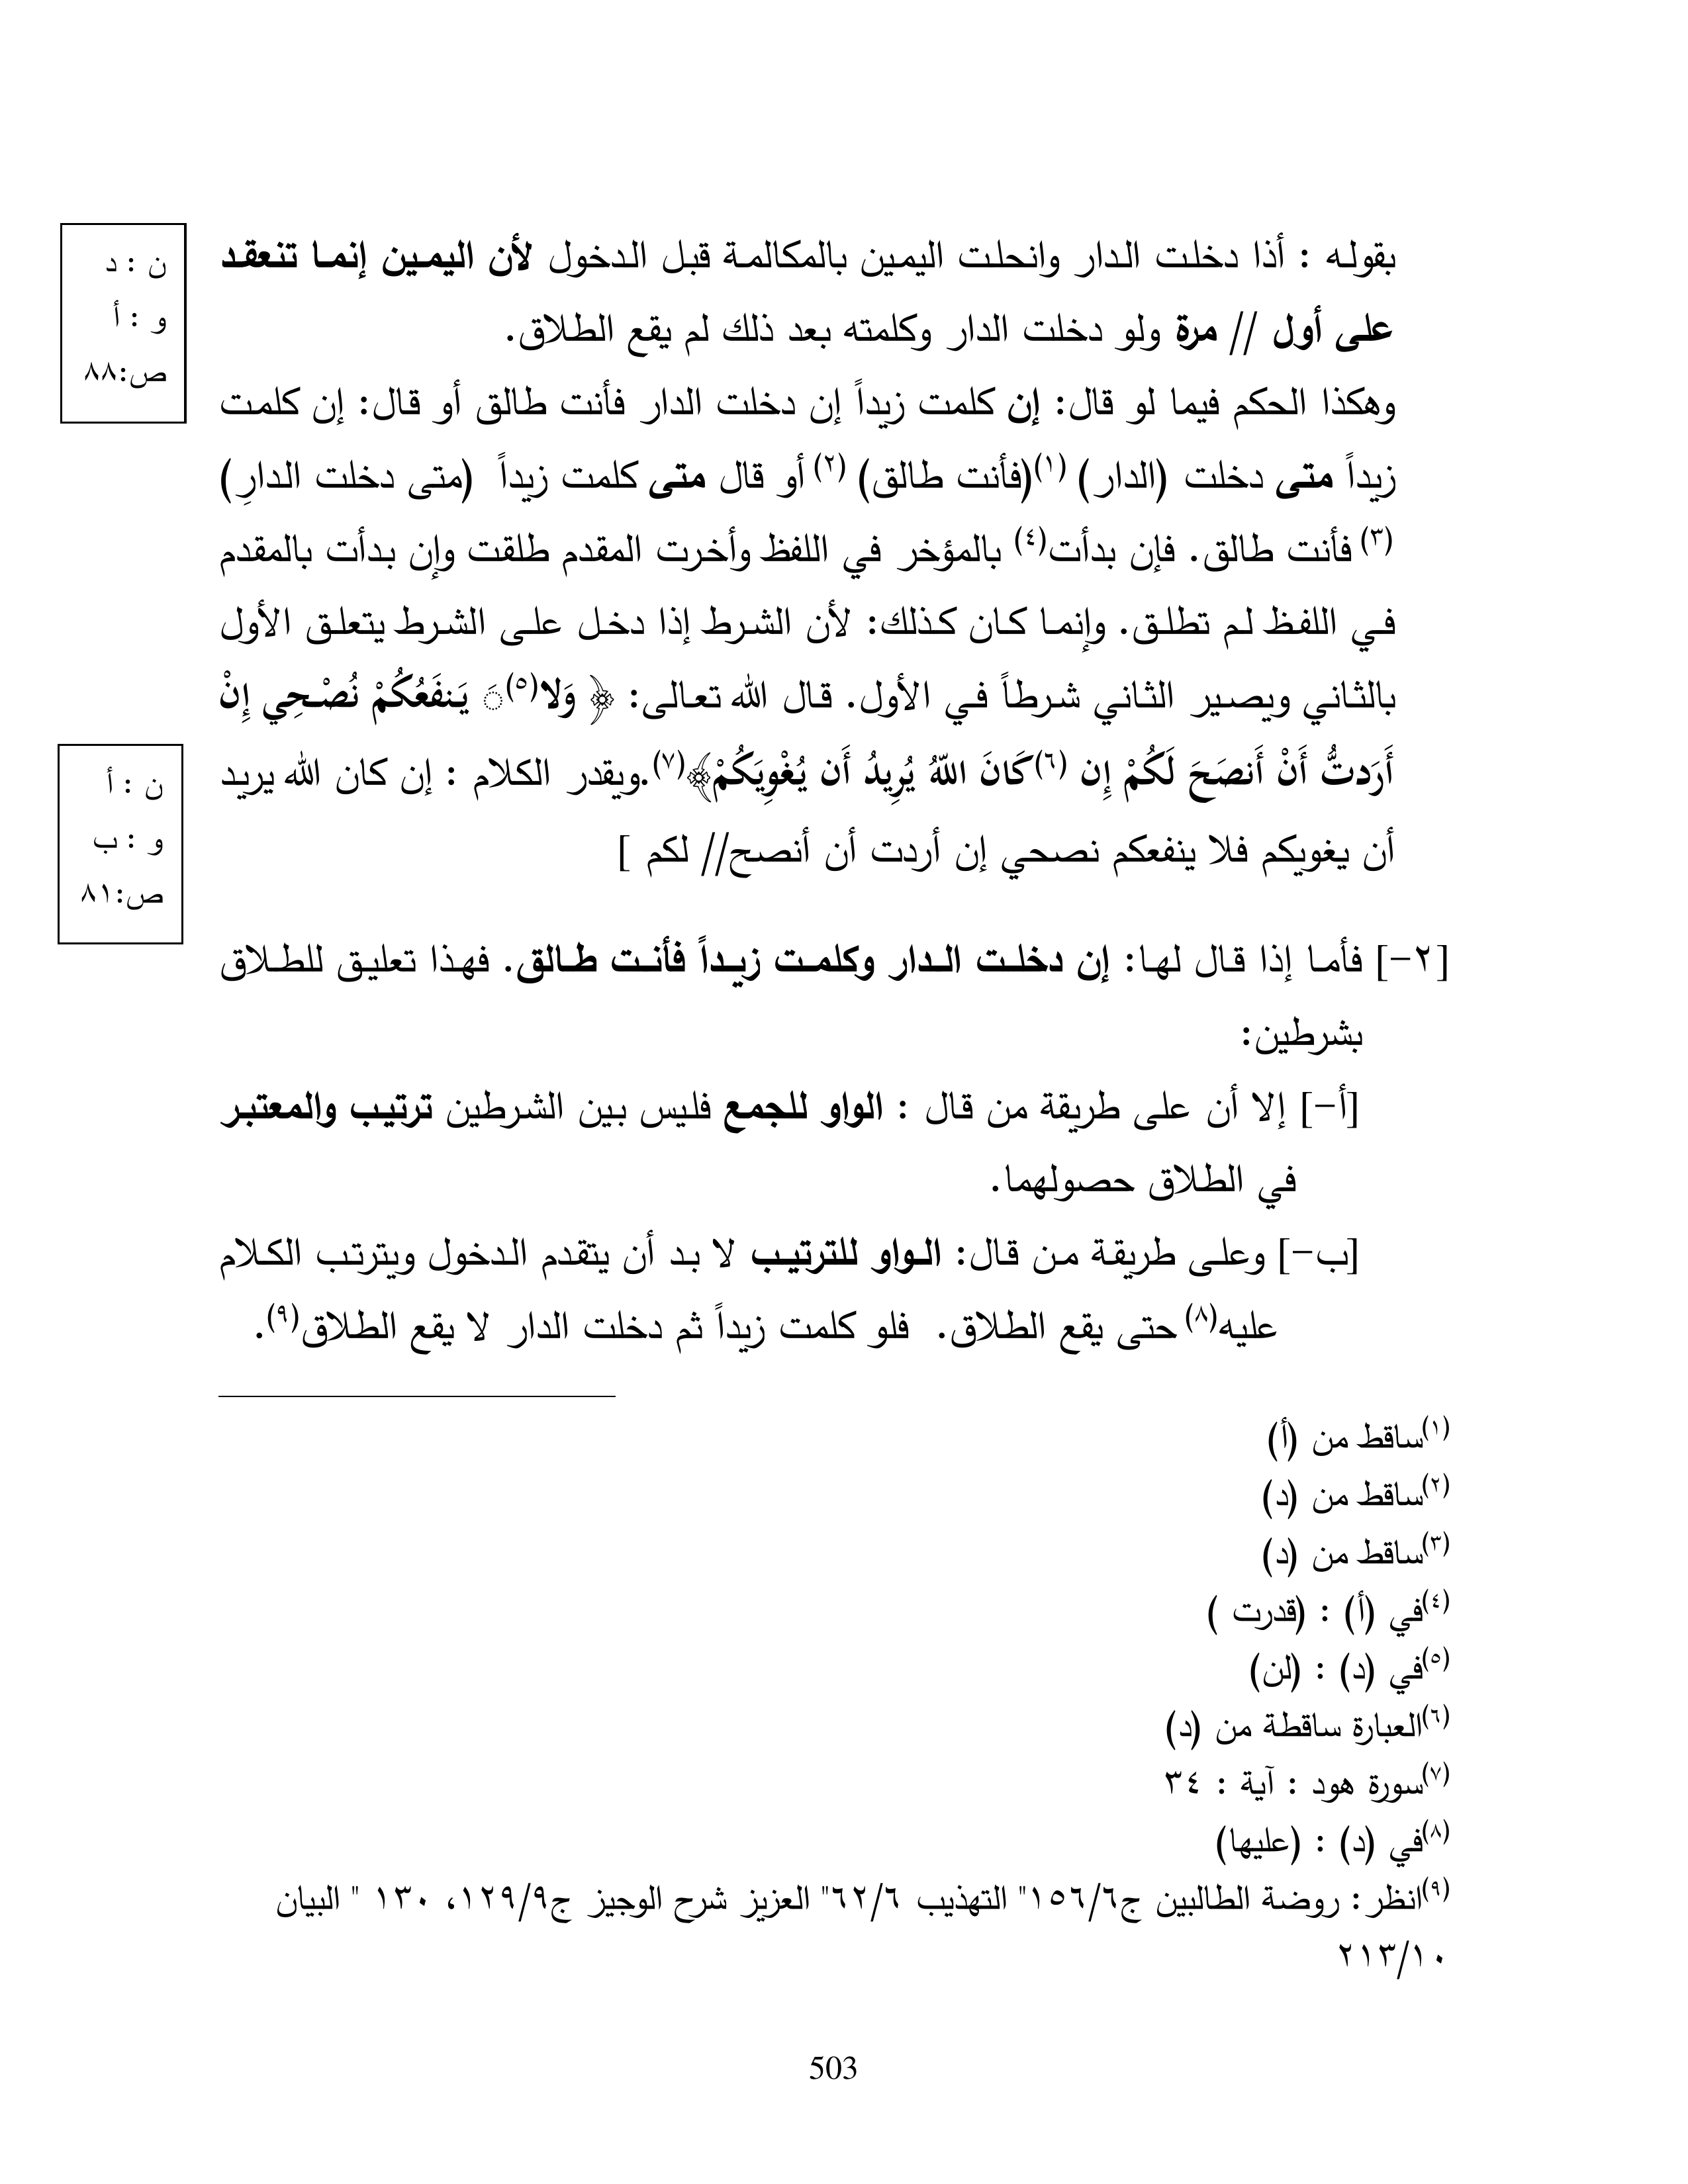 بقوله : أذا دخلت الدار وانحلت اليمين بالمكالمة قبل الدخول لأن اليمين إنما تنعقد
على أول // مرة ولو دخلت الدار وكلمته بعد ذلك لم يقع الطلاق.
ن : د
و : أ
ص:٨٨
وهكذا الحكم فيما لو قال: إن كلمت زيداً إن دخلت الدار فأنت طالق أو قال: إن كلمت
زيداً متى دخلت (الدار) (١)(فأنت طالق) (٢) أو قال متى كلمت زيداً (متى دخلت الدارِ)
(٣) فأنت طالق. فإن بدأت(٤) بالمؤخر في اللفظ وأخرت المقدم طلقت وإن بدأت بالمقدم
في اللفظ لم تطلق. وإنما كان كذلك: لأن الشرط إذا دخل على الشرط يتعلق الأول
بالثاني ويصير الثاني شرطاً في الأول. قال الله تعالى: ﴿ وَلا(٥)َ يَنفَعُكُمْ نُصْحِي إِنْ
أَرَدتُّ أَنْ أَنصَحَ لَكُمْ إِن (٦)كَانَ اللّهُ يُرِيدُ أَن يُغْوِيَكُمْ﴾(٧).ويقدر الكلام : إن كان الله يريد
أن يغويكم فلا ينفعكم نصحي إن أردت أن أنصح// لكم ]
ن : أ
و : ب
ص:٨١
[٢-] فأما إذا قال لها: إن دخلت الدار وكلمت زيداً فأنت طالق. فهذا تعليق للطلاق
بشرطين:
[أ-] إلا أن على طريقة من قال : الواو للجمع فليس بين الشرطين ترتيب والمعتبر
في الطلاق حصولهما.
[ب-] وعلى طريقة من قال: الواو للترتيب لا بد أن يتقدم الدخول ويترتب الكلام
عليه(٨) حتى يقع الطلاق. فلو كلمت زيداً ثم دخلت الدار لا يقع الطلاق(٩).
(١)ساقط من (أ)
(٢)ساقط من (د)
(٣)ساقط من (د)
(٤)في (أ) : (قدرت )
(٥)في (د) : (لن)
(٦)العبارة ساقطة من (د)
(٧)سورة هود : آية : ٣٤
(٨)في (د) : (عليها)
(٩)انظر: روضة الطالبين ج١٥٦/٦" التهذيب ٦٢/٦" العزيز شرح الوجيز ج١٢٩/٩، ١٣٠ " البيان
٢١٣/١٠
503